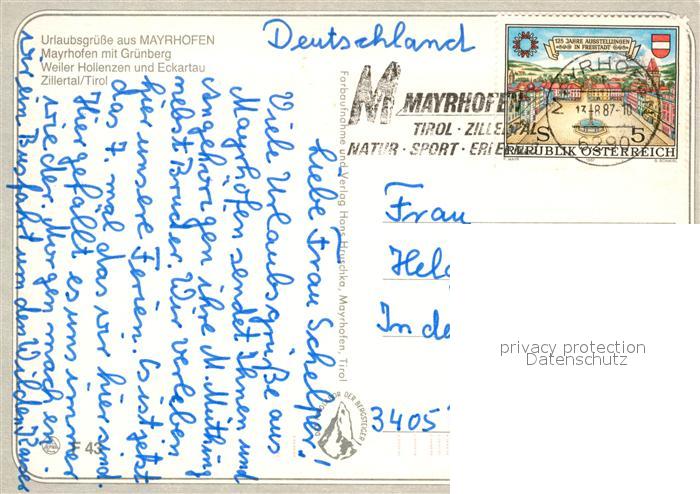 Urlaubsgrüße aus MAYRHOFEN
Mayrhofen mit Grünberg
Weiler Hollenzen und Eckartau
Zillertal/Tirol
Deutschland
125 JAHRE AUSSTELLUNGEN
IN FREISTADT
5
S
REPUBLIK ÖSTERREICH
MAYRHOFEN
TIROL · ZILLERTAL
NATUR · SPORT · ERLEBNIS
6290
Farbaufnahme und Verlag Hans Hruschka, Mayrhofen, Tirol
Liebe Frau Schelper!
Viele Urlaubsgrüße aus
Mayrhofen sendet Ihnen und
Angehörigen ihre M. Müthing
nebst Bruder. Wir verleben
hier unsere Ferien. Es ist jetzt
das 7. mal das wir hier sind.
Hier gefällt es uns immer
wieder. Morgen machen
wir eine Busfahrt um den Wilden Kaiser
Frau
Hel
In de
3405
privacy protection
Datenschutz
F 43